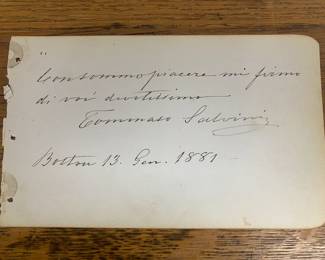 "
Con sommo piacere mi firmo
di voi devotissimo
Tommaso Salvini
Boston 13. Gen. 1881